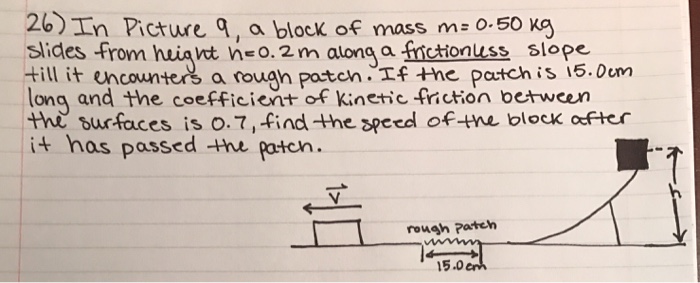 26) In Picture 9, a block of mass m= 0.50 kg
slides from height h=0.2m along a frictionless slope
till it encounters a rough patch. If the patch is 15.0cm
long and the coefficient of kinetic friction between
the surfaces is 0.7, find the speed of the block after
it has passed the patch.
V
h
rough patch
15.0cm